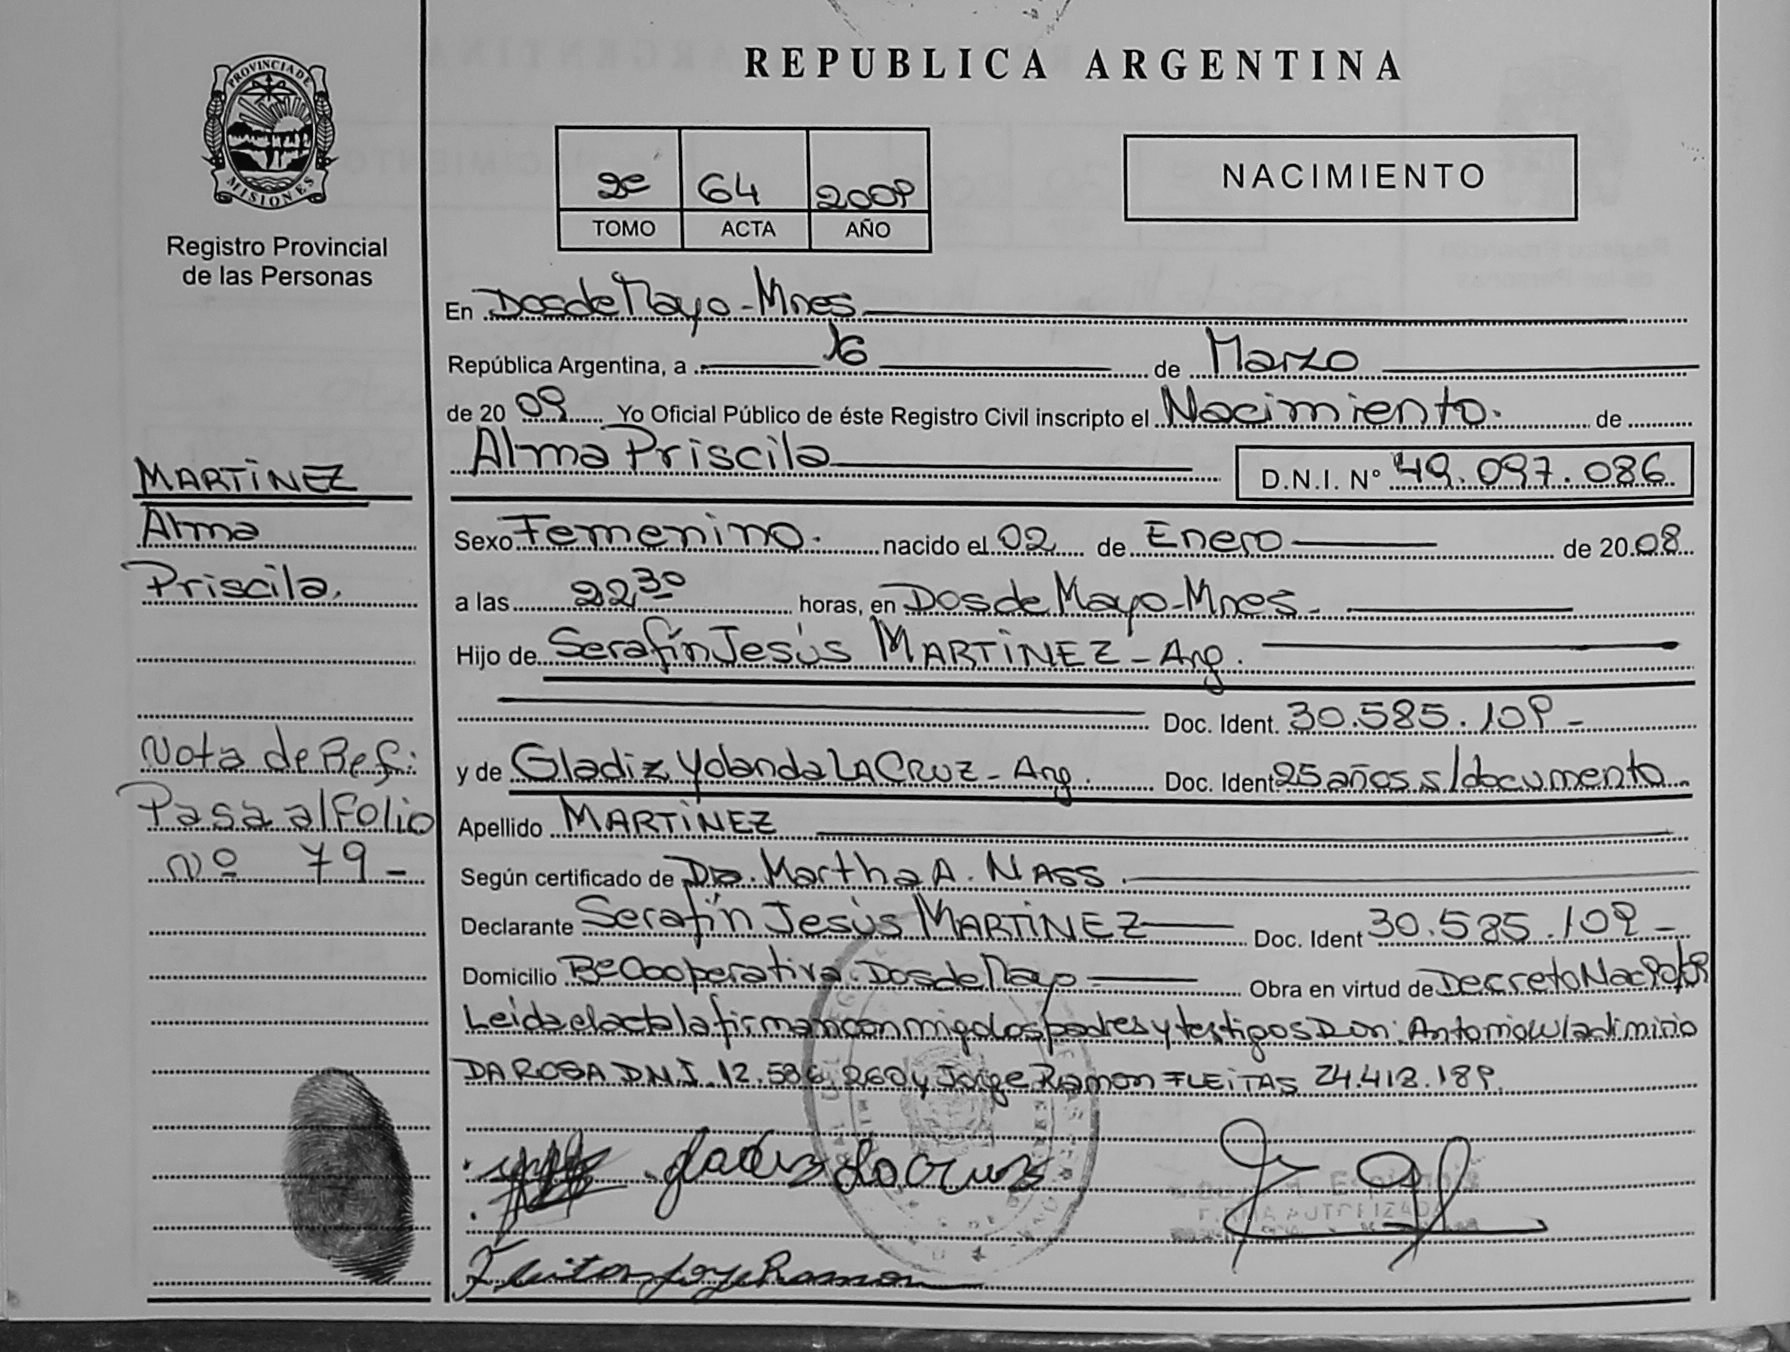 PROVINCIA DE
MISIONES
Registro Provincial
de las Personas
REPUBLICA ARGENTINA
2º 64 2009
TOMO ACTA AÑO
NACIMIENTO
En Dos de Mayo - Mnes
República Argentina, a 16 de Marzo
de 20 09 Yo Oficial Público de éste Registro Civil inscripto el Nacimiento. de
Alma Priscila D.N.I. Nº 49.097.086
Sexo Femenino. nacido el 02 de Enero de 20 08
a las 22,30 horas, en Dos de Mayo - Mnes.
Hijo de Serafín Jesús MARTINEZ - Arg.
Doc. Ident. 30.585.109 -
y de Gladiz Yolanda LA CRUZ - Arg. Doc. Ident 25 años s/documento
Apellido MARTINEZ
Según certificado de Dra. Martha A. NASS.
Declarante Serafín Jesús MARTINEZ Doc. Ident 30.585.109 -
Domicilio Bº Cooperativa. Dos de Mayo Obra en virtud de Decreto Nac 90/09
Leida el acta la firman conmigo los padres y testigos Don: Antonio Wladimirio
DA ROSA D.N.I. 12.586.260 y Jorge Ramon FLEITAS 24.418.189.
Gladiz La Cruz
Fleitas Jorge Ramon
FIRMA AUTORIZADA
MARTINEZ
Alma
Priscila.
Nota de Ref:
Pasa al Folio
Nº 79 -